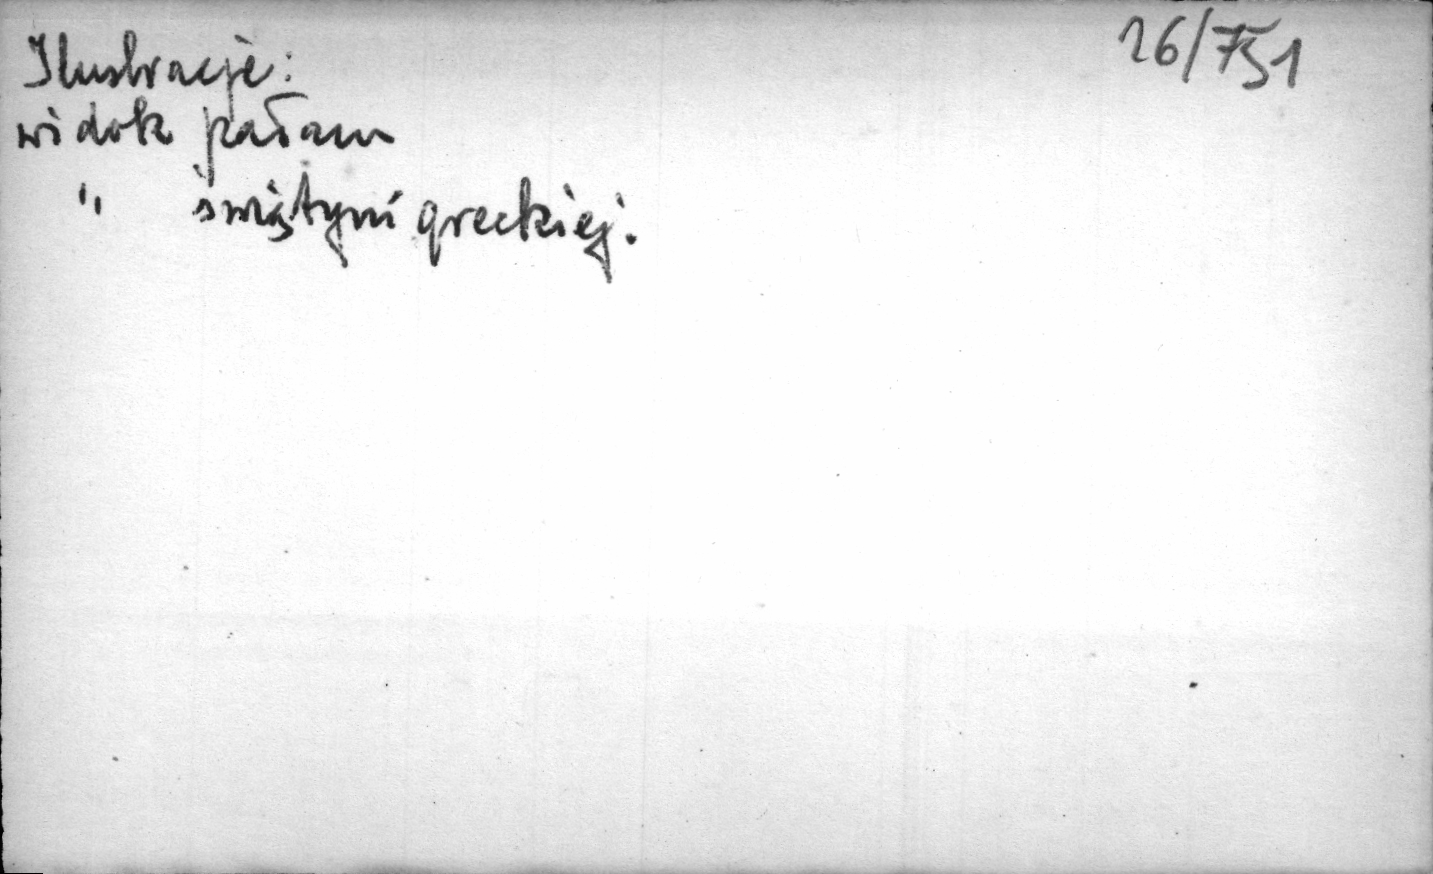 26/751
Ilustracje:
widok pałacu
" świątyni greckiej.